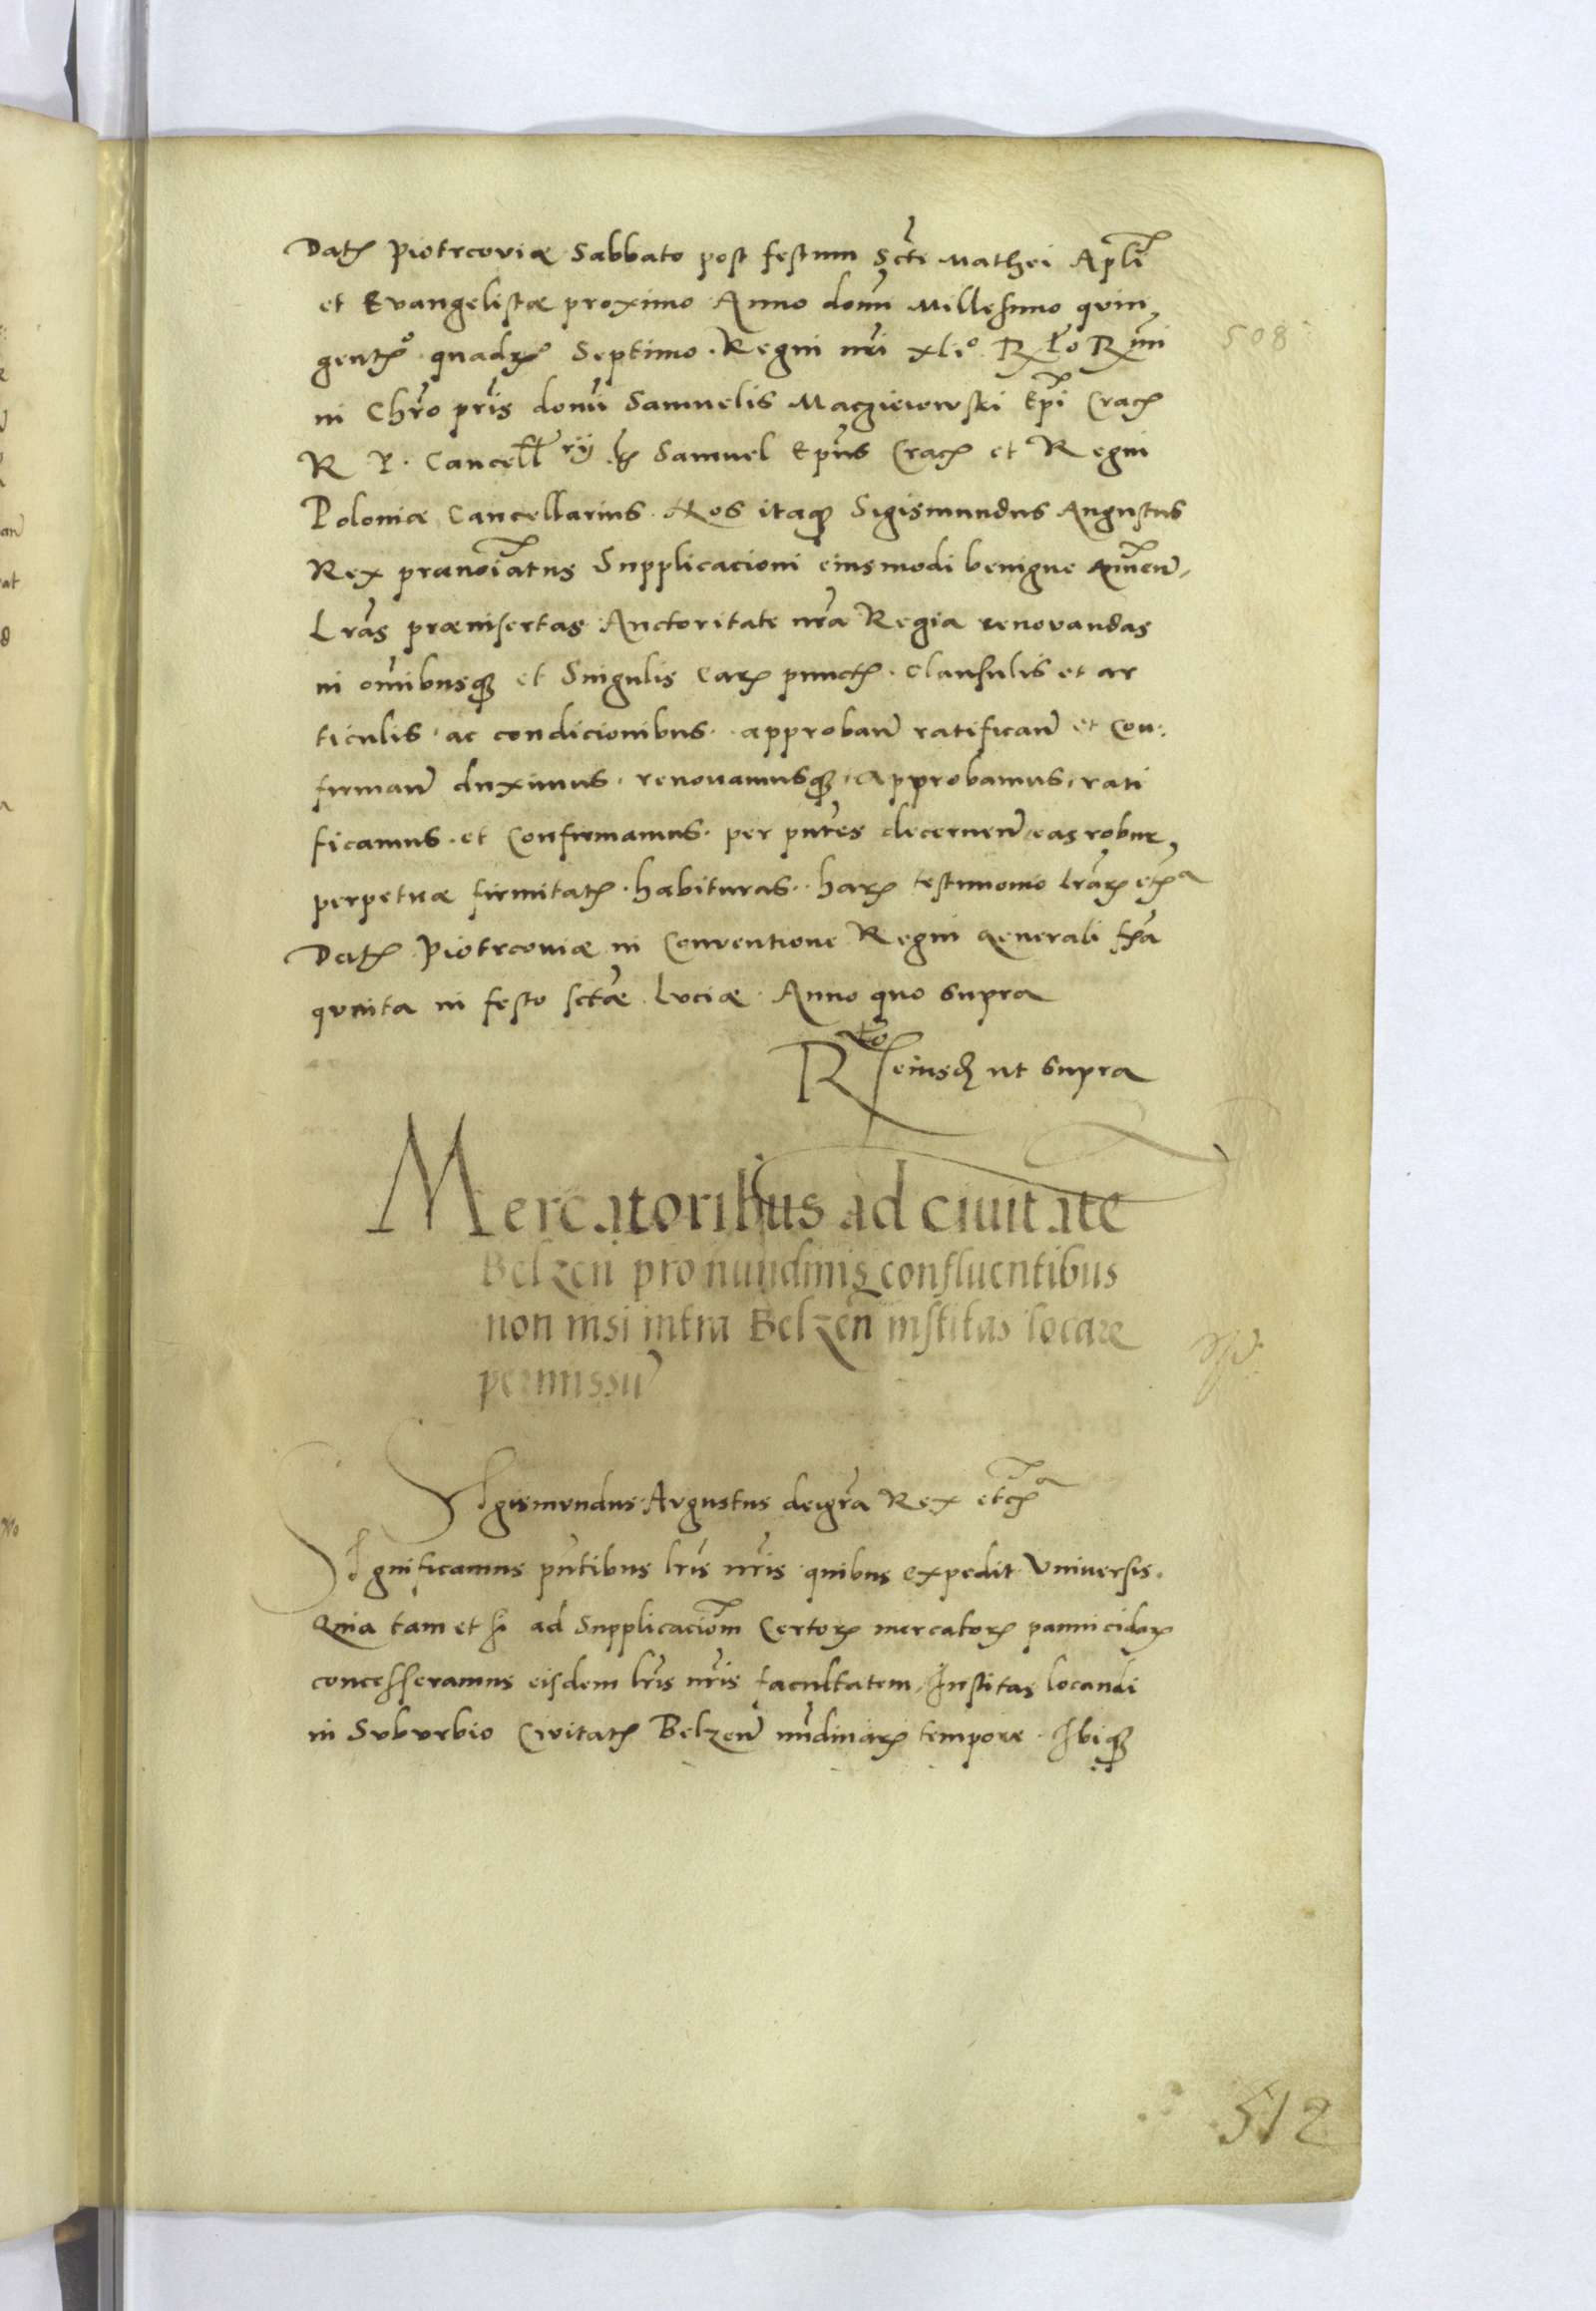 Datꝭ Piotrcoviæ Sabbato post festum Scti Mathei Apli
et Evangelistæ proximo Anno domi Millesimo quin
gentᵒ quadrᵒ Septimo. Regni nri xliᵒ. Rlo Rmi
in Chro pris domi Samuelis Macziejowski Epi Cracꝭ
R P. Cancellrij Samuel Epus Cracꝭ et Regni
Poloniæ Cancellarius. Nos itaqꝫ Sigismundus Augustus
Rex prænoiatus Supplicacioni eiusmodi benigne annuen.
Lras præinsertas Auctoritate nra Regia renovandas
in omibusqꝫ et Singulis earꝝ punctꝭ. clausulis et ar
ticulis. ac condicionibus. approban ratifican et Con.
firman duximus. renouamusqꝫ. Approbamus. rati
ficamus. et Confirmamus. per pntes decernen eas robur
perpetuæ firmitatꝭ. habituras. harꝝ testimonio lrarꝝ etcᵃ
Datꝭ Piotrcouiæ in Conventione Regni generali fria
quinta in festo sctæ Luciæ Anno quo supra
Rto eiusd ut supra
508
Mercatoribus ad ciuitate
Belzen pro nundinis confluentibus
non nisi intra Belzen institas locare
permissu
Sigismundus Augustus dei gra Rex etcᵃ
Significamus pntibus lris nris quibus expedit Vniversis.
Quia tam et si ad Supplicaciom Certorꝝ mercatorꝝ pannicidarꝝ
concesseramus eisdem lris nris facultatem Institas locandi
in Suburbio Civitatꝭ Belzen nundinarꝝ tempore. Ibiqꝫ
512